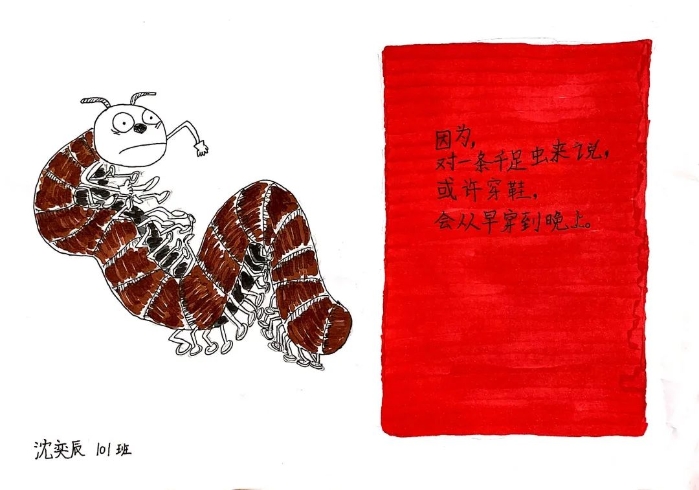 因为,
对一条千足虫来说,
或许穿鞋,
会从早穿到晚上。
沈奕辰 101班